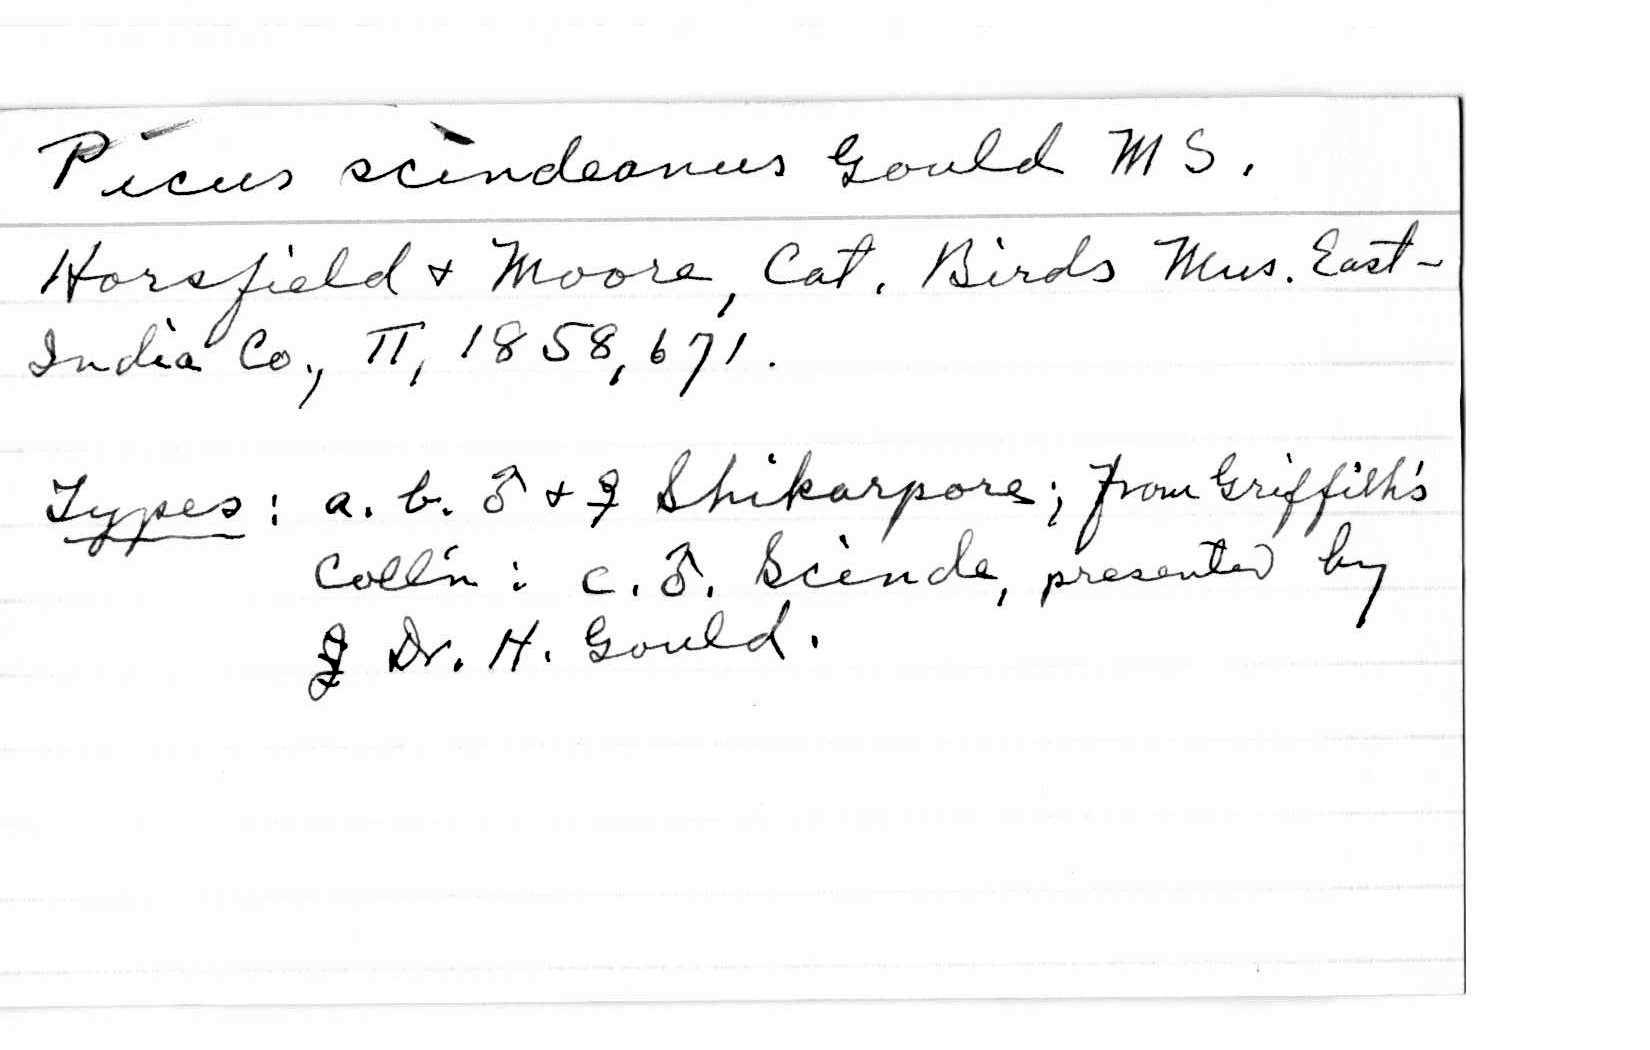 Picus scindeanus Gould MS.
Horsfield & Moore, Cat. Birds Mus. East-
India Co., II, 1858, 671.
Types: a. b. ♂ & ♀ Shikarpore; from Griffith's
Coll'n: c. ♂. Scinde, presented by
Dr. H. Gould.